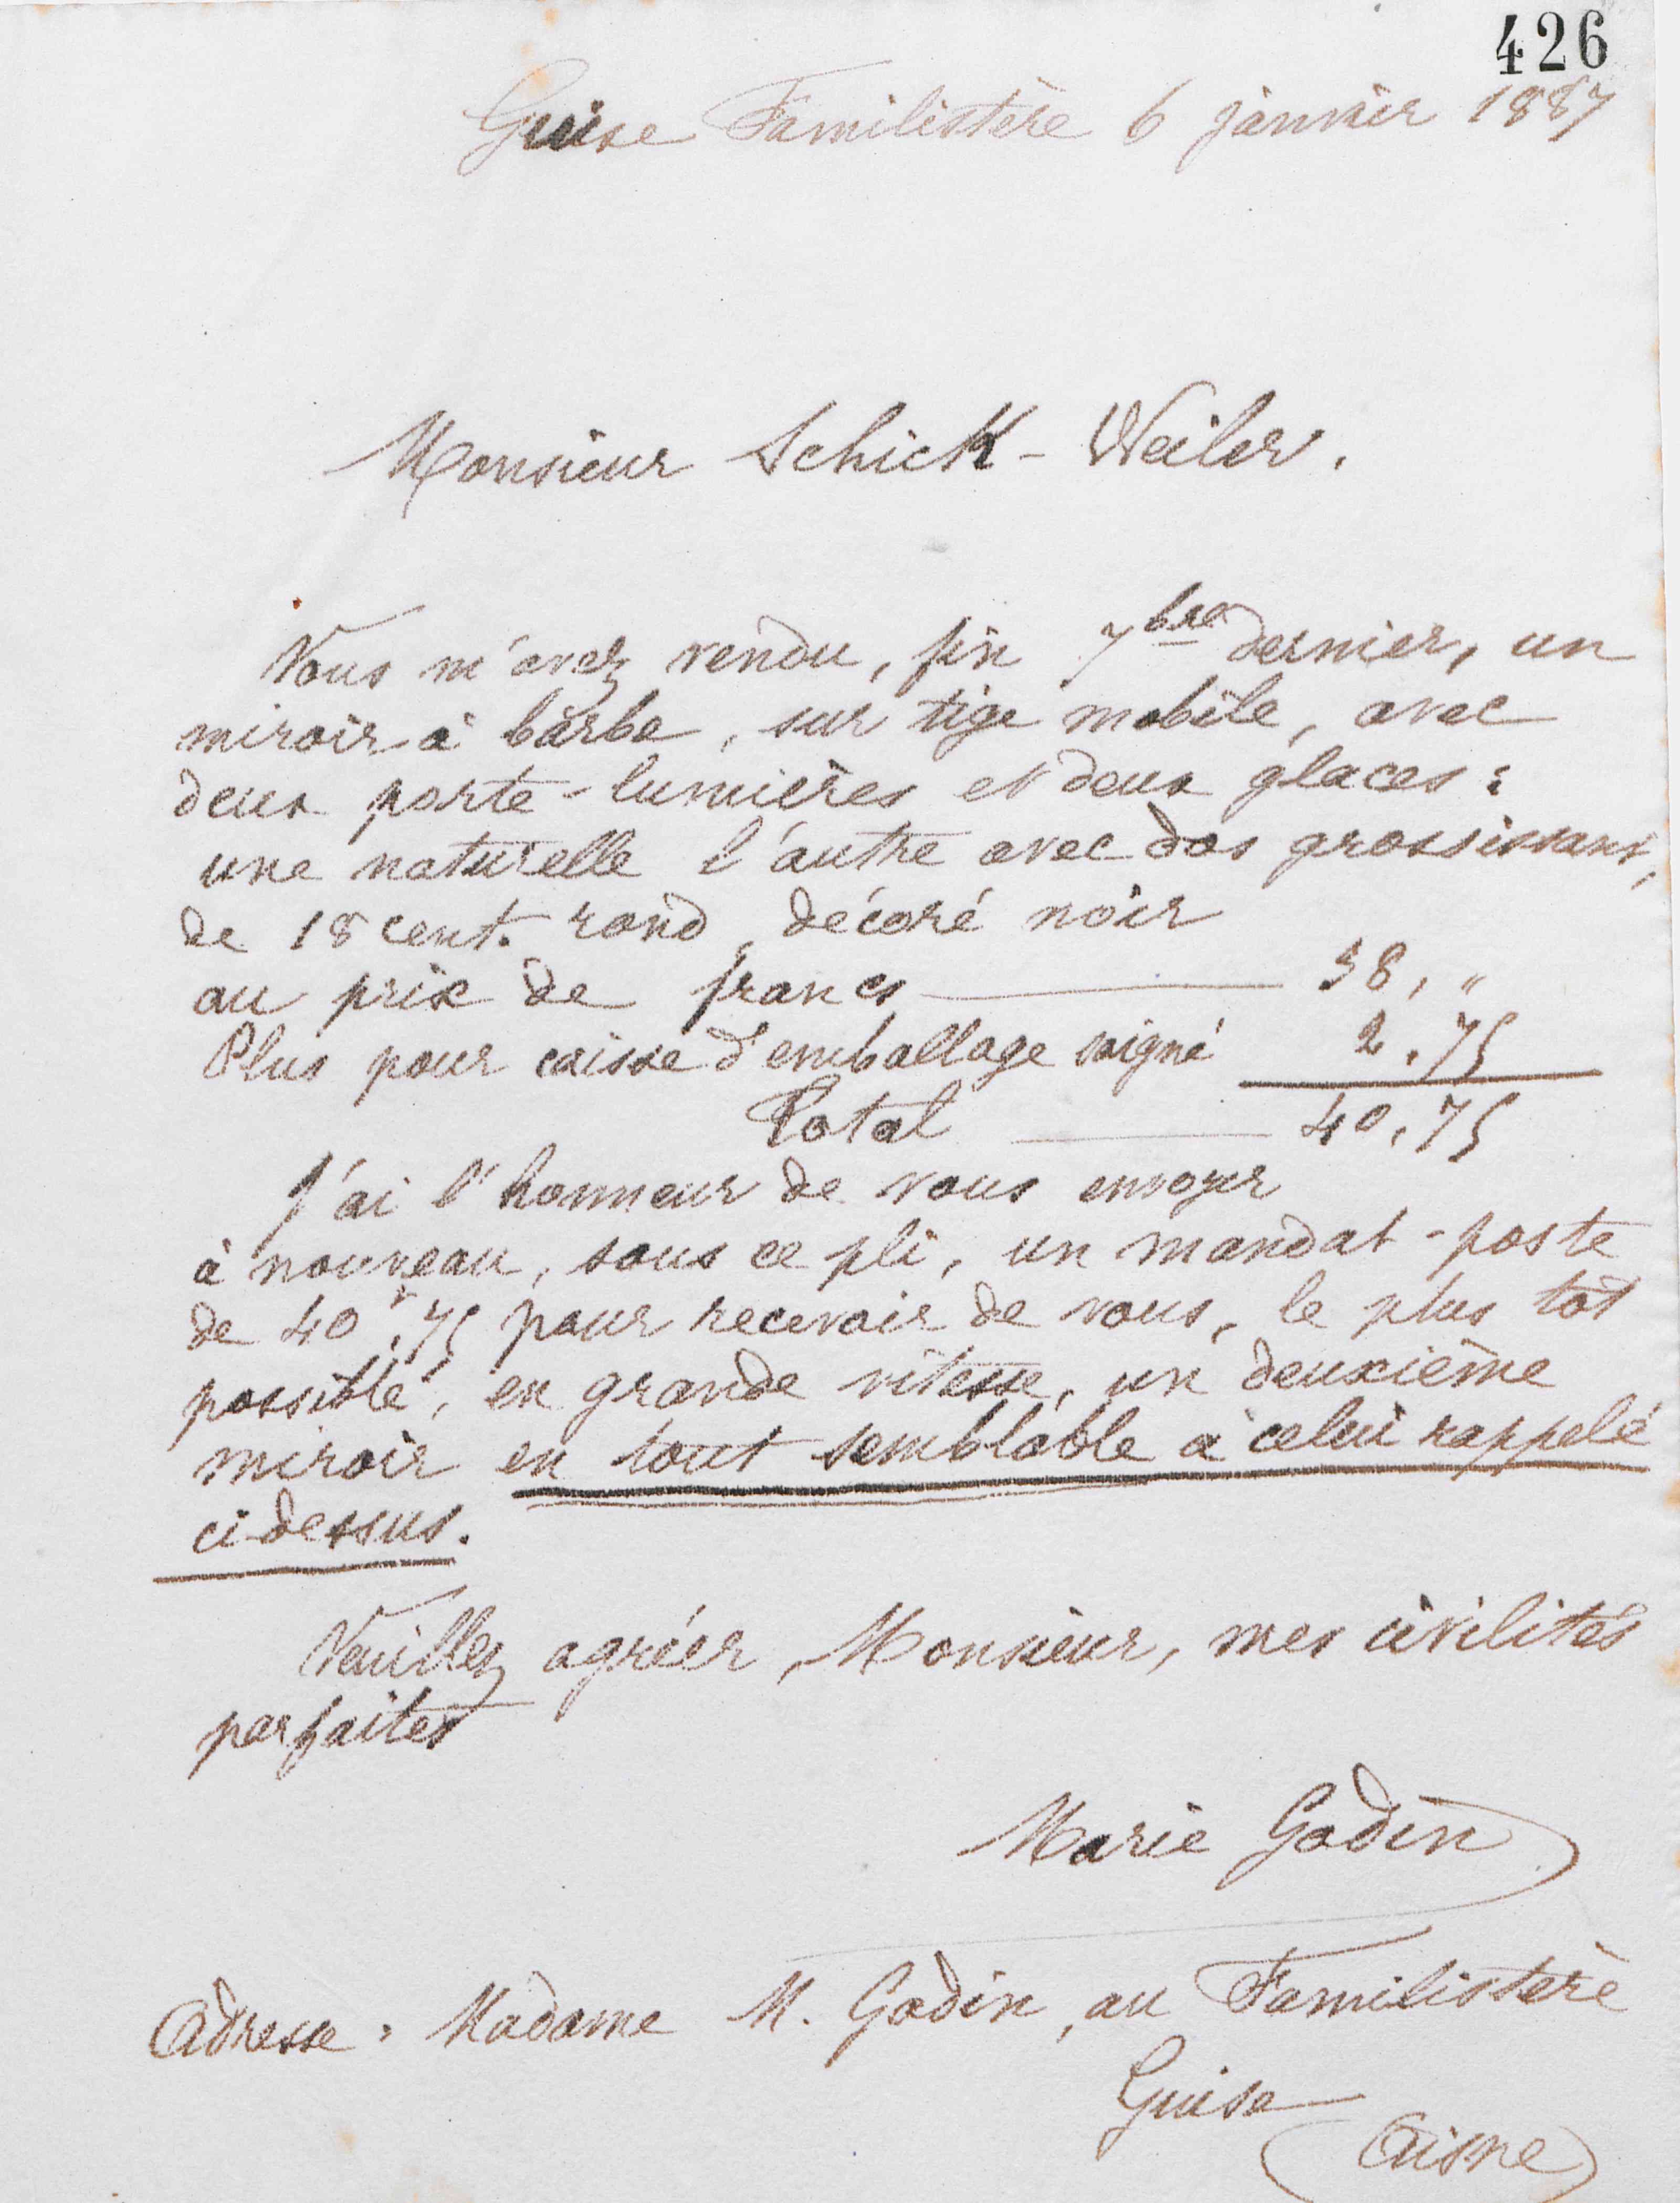 426
Guise Familistère 6 janvier 1887
Monsieur Schick-Weiler.
Vous m'avez vendu, fin 7bre dernier, un
miroir à barbe, sur tige mobile, avec
deux porte-lumières et deux glaces :
une naturelle l'autre avec dos grossissant,
de 18 cent. rond, décoré noir
au prix de francs 38, "
Plus pour caisse d'emballage soigné 2.75
Total 40.75
J'ai l'honneur de vous envoyer
à nouveau, sous ce pli, un mandat-poste
de 40f.75 pour recevoir de vous, le plus tôt
possible, en grande vitesse, un deuxième
miroir en tout semblable à celui rappelé
ci-dessus.
Veuillez agréer, Monsieur, mes civilités
parfaites
Marie Godin
Adresse : Madame M. Godin, au Familistère
Guise
(Aisne)